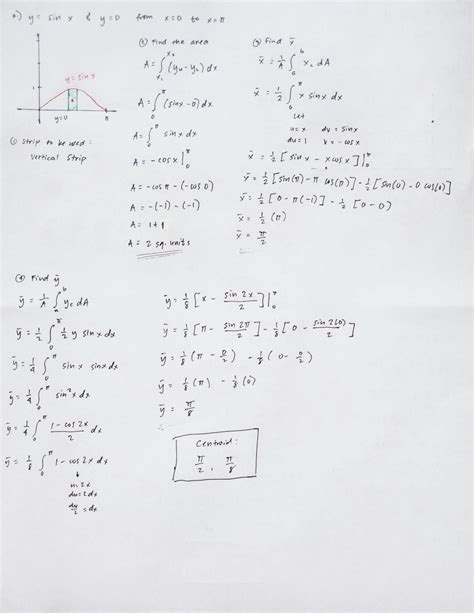 a) y = sin x & y = 0 from x = 0 to x = π
y = sin x
1
y=0
π
① strip to be used :
Vertical Strip
② Find the area
A = ∫_{x₁}^{x₂} (yᵤ - y_L) dx
A = ∫_0^π (sinx - 0) dx
A = ∫_0^π sin x dx
A = - cos x |_0^π
A = - cos π - (- cos 0)
A = - (-1) - (-1)
A = 1 + 1
A = 2 sq. units
③ find x̄
x̄ = 1/A ∫_a^b x_c dA
x̄ = 1/2 ∫_0^π x sin x dx
Let
u = x dv = sinx
du = 1 v = - cos x
x̄ = 1/2 [sin x - x cos x] |_0^π
x̄ = 1/2 [sin(π) - π cos(π)] - 1/2 [sin(0) - 0 cos(0)]
x̄ = 1/2 [0 - π(-1)] - 1/2 [0 - 0]
x̄ = 1/2 (π)
x̄ = π/2
④ Find ȳ
ȳ = 1/A ∫_a^b y_c dA
ȳ = 1/2 ∫_0^π 1/2 y sin x dx
ȳ = 1/4 ∫_0^π sin x sinx dx
ȳ = 1/4 ∫_0^π sin² x dx
ȳ = 1/4 ∫_0^π (1 - cos 2x)/2 dx
ȳ = 1/8 ∫_0^π 1 - cos 2x dx
u = 2x
du = 2dx
du/2 = dx
ȳ = 1/8 [x - sin 2x/2] |_0^π
ȳ = 1/8 [π - sin 2π/2] - 1/8 [0 - sin 2(0)/2]
ȳ = 1/8 (π - 0/2) - 1/8 (0 - 0/2)
ȳ = 1/8 (π) - 1/8 (0)
ȳ = π/8
Centroid :
π/2 , π/8